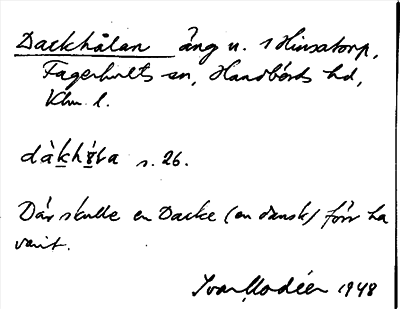 Dackhålan äng u. 1 Hinsatorp,
Fagerhults sn, Handbörds hd,
Klm. l.
dàkhå̀la s. 26.
Där skulle en Dacke (en dansk) förr ha
varit.
Ivar Modéer 1948